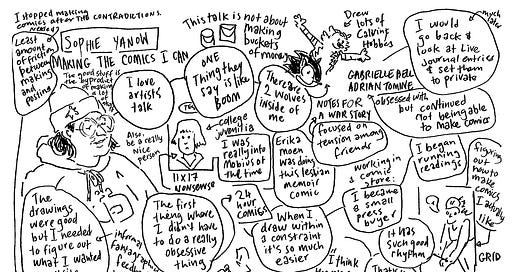 I stopped making
comics after THE CONTRADICTIONS.
Least
amount
of friction
between
making
and
posting
SOPHIE YANOW
MAKING THE COMICS I CAN
The good stuff is
the byproduct
of making
a lot
I love
artists
talk
Also,
be a really
nice
person
This talk is not about
making
buckets
of money
ONE
Thing they
say is like
BOOM
college
juvenilia
11x17
NONSENSE
I was
really into
Mobius at
the time
There are
2 wolves
inside of
me
Drew
lots of
Calvin &
Hobbes
I would
go back &
look at Live
Journal entries
& set them
to private
much later
GABRIELLE BELL
ADRIAN TOMINE
obsessed with
but continued
not being able
to make comics
NOTES FOR
A WAR STORY
focused on
tension among
friends
Erika
moen
was doing
this lesbian
memoir
comic
working in
a comic
store:
I became
a small
press
buyer
I began
running
readings
figuring
out
how to
make
comics
I actually
like
The
drawings
were good
but I needed
to figure out
what I wanted
informal
feedback
The first
thing where
I didn't
have to
do a really
obsessive
thing
24
hour
comics
When I
draw within
a constraint
it's so much
easier
I think
It has
such good
rhythm
GRID